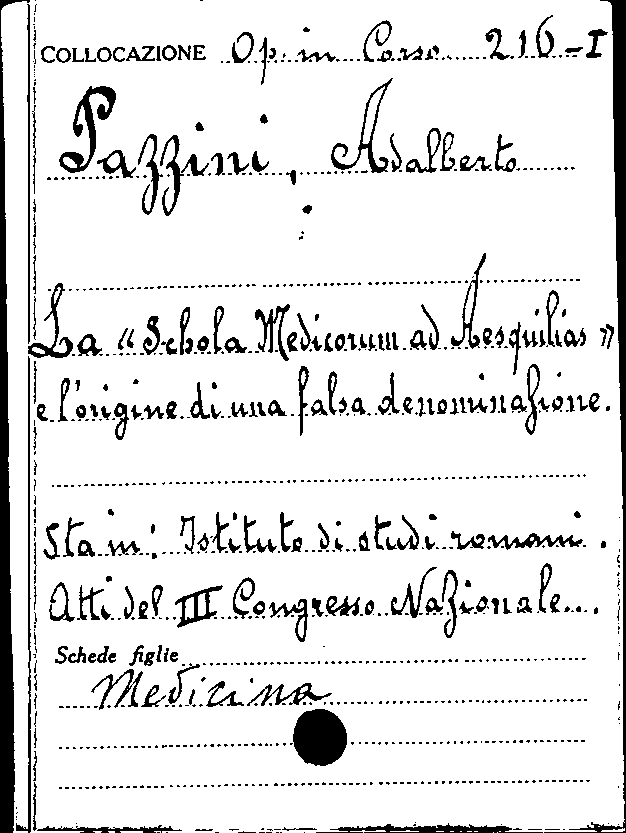 COLLOCAZIONE Op. in Corso 216-I
Pazzini, Adalberto
La « Schola Medicorum ad Aesquilias »
e l'origine di una falsa denominazione.
Sta in: Istituto di studi romani.
Atti del III Congresso Nazionale...
Schede figlie
Medicina